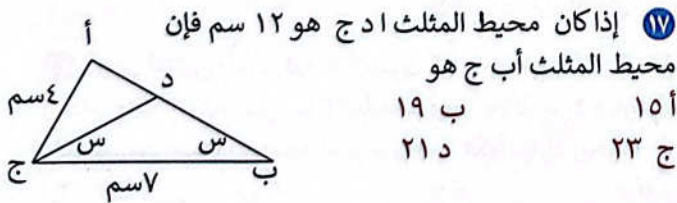 ١٧ إذا كان محيط المثلث ا د ج هو ١٢ سم فإن
محيط المثلث أ ب ج هو
أ ١٥ ب ١٩
ج ٢٣ د ٢١
أ
د
٤سم
س
س
ج
ب
٧سم